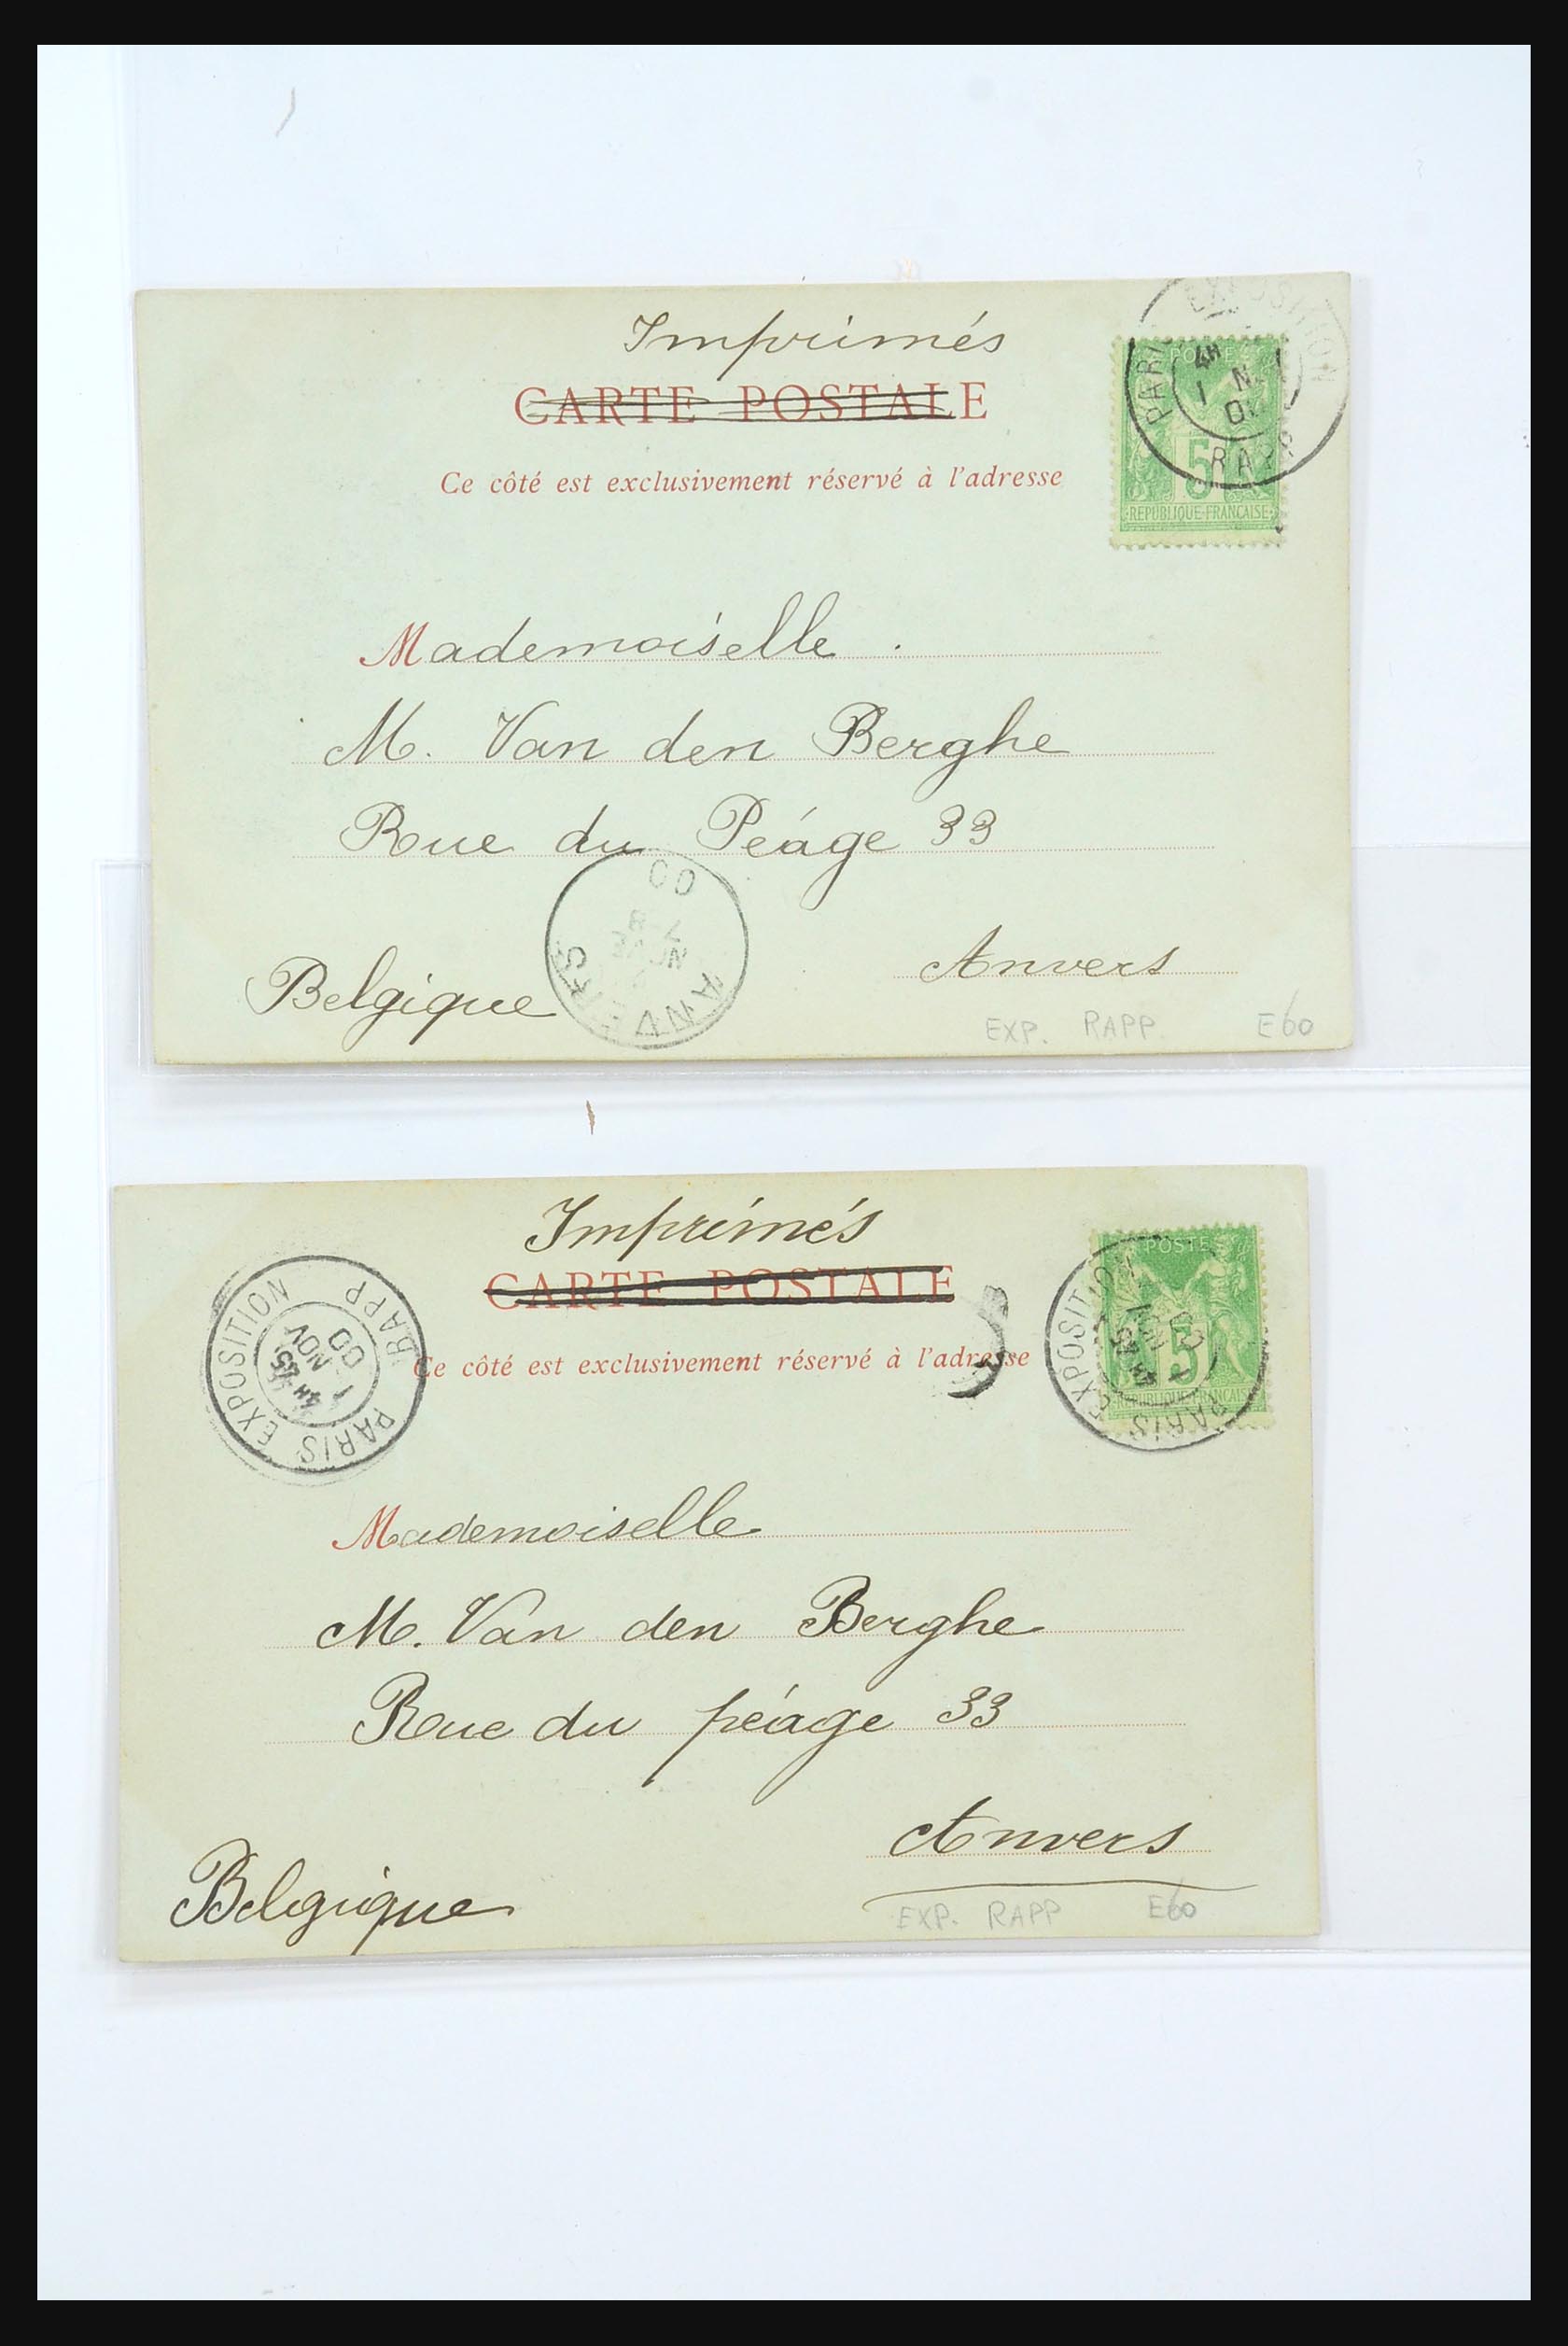 Imprimés
CARTE POSTALE
Ce côté est exclusivement réservé à l'adresse
PARIS EXPOSITION
4H
1 N
RAPP
POSTES
5
REPUBLIQUE FRANÇAISE
Mademoiselle
M. Van den Berghe
Rue du Péage 33
Anvers
Belgique
00
ANVERS
EXP. RAPP. E60
Imprimés
CARTE POSTALE
Ce côté est exclusivement réservé à l'adresse
PARIS EXPOSITION
4H 45
1 NOV
00
RAPP
POSTES
5
REPUBLIQUE FRANÇAISE
PARIS EXPOSITION
1 NOV
00
Mademoiselle
M. Van den Berghe
Rue du péage 33
Anvers
Belgique
EXP. RAPP E60